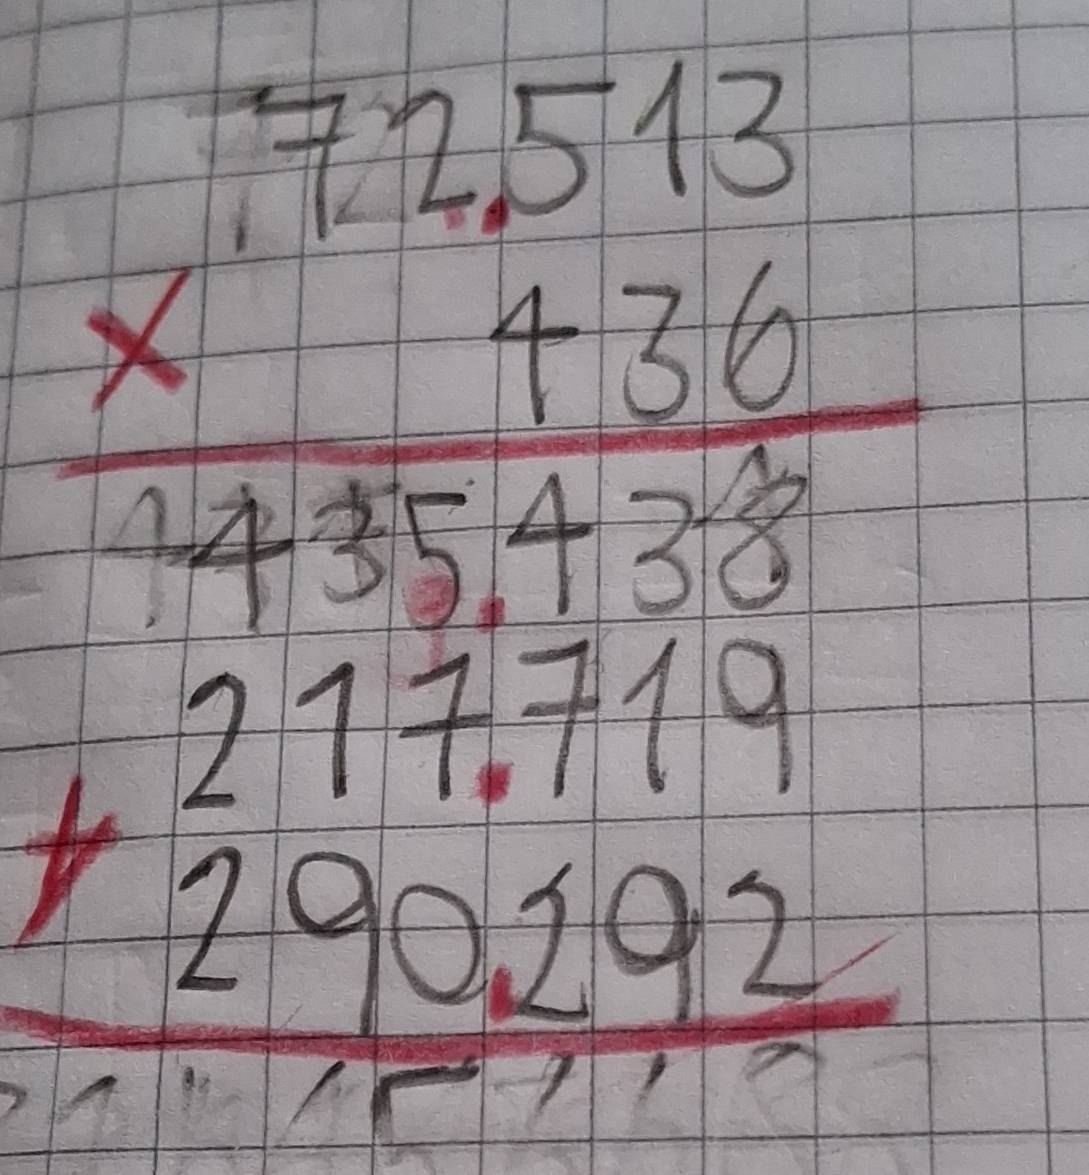 72.513
× 436
435.438
217.719
+ 290.292